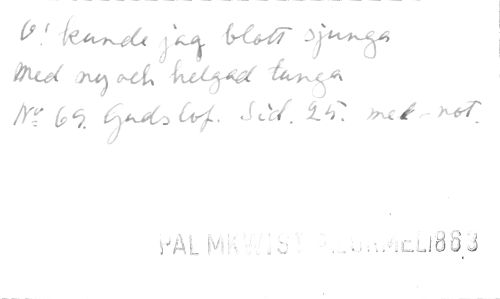 O! kunde jag blott sjunga
med ny och helgad tunga
No 69. Guds lof. Sid. 25. mel-not.
PALMKWIST 1863